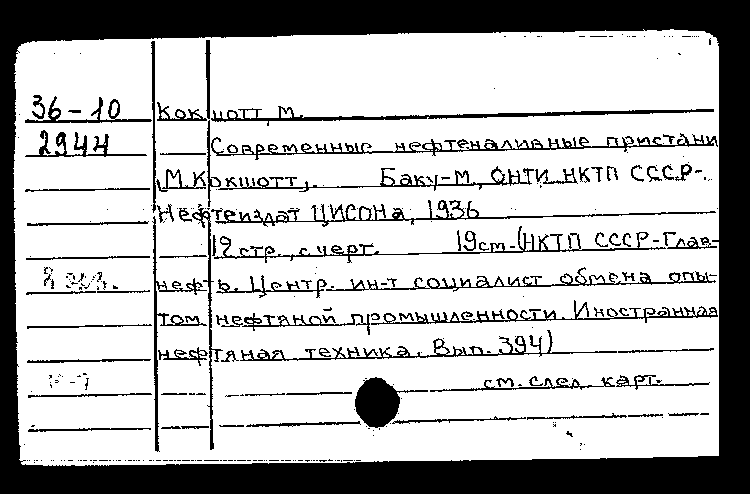 36-10 Кокшотт, М.
2944 Современные нефтеналивные пристани
(М. Кокшотт). Баку-М., ОНТИ НКТП СССР-
Нефтеиздат ЦИСОНа, 1936
12 стр., с черт. 19 см. (НКТП СССР-Глав-
2 экз. нефть. Центр. ин-т социалист обмена опы-
том нефтяной промышленности. Иностранная
нефтяная техника. Вып. 394)
см. след. карт.